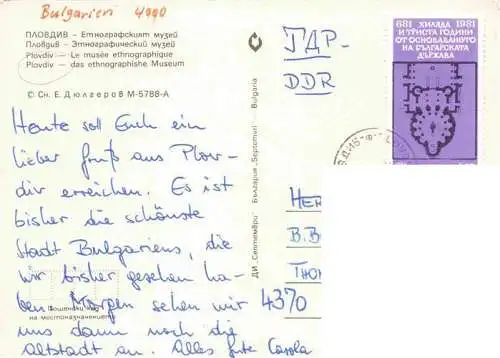 Bulgarien 4000
ПЛОВДИВ – Етнографският музей
Пловдив – Этнографический музей
Plovdiv – Le musée ethnographique
Plovdiv – das ethnographishe Museum
© Сн. Е. Дюлгеров М-5788-А
Heute soll Euch ein
lieber Gruß aus Plov-
div erreichen. Es ist
bisher die schönste
Stadt Bulgariens, die
wir bisher gesehen ha-
ben Morgen sehen wir
uns dann noch die
Altstadt an. Alles Gute Carola
Пощенски
на местоназначението
ДИ „Септември" България „Septemvri" Bulgaria
ГДР-
DDR
681 ХИЛЯДА 1981
И ТРИСТА ГОДИНИ
ОТ ОСНОВАВАНЕТО
НА БЪЛГАРСКАТА
ДЪРЖАВА
HER
B.B
THO
4370